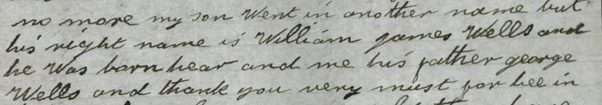 no more my son Went in another name but
his right name is William james Wells and
he Was barn hear and me his father george
Wells and thank you very must for bee in